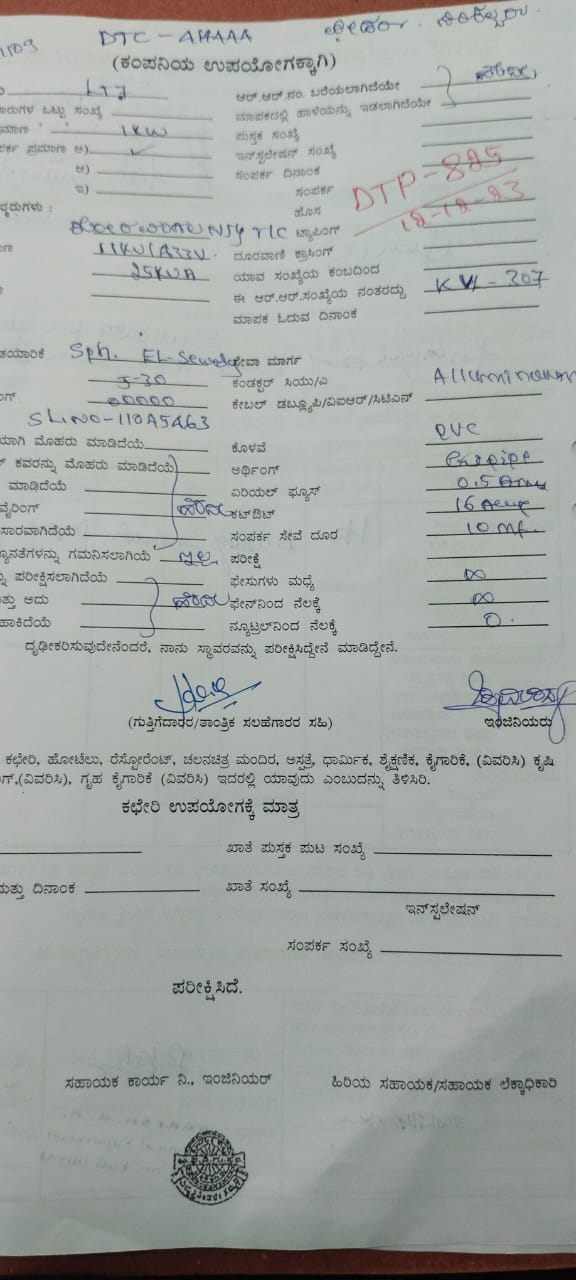 1109 DTC - AHAAA
(ಕಂಪನಿಯ ಉಪಯೋಗಕ್ಕಾಗಿ)
LT7 ಆರ್.ಆರ್.ನಂ. ಬರೆಯಲಾಗಿದೆಯೇ
ಾರುಗಳ ಒಟ್ಟು ಸಂಖ್ಯೆ ಮಾಪಕದಲ್ಲಿ ಹಾಳೆಯನ್ನು ಇಡಲಾಗಿದೆಯೇ
ಮಾಣ 1KW ಪುಸ್ತಕ ಸಂಖ್ಯೆ
ಪರ್ಕ ಪ್ರಮಾಣ ಅ) ಇನ್‌ಸ್ಟಲೇಷನ್ ಸಂಖ್ಯೆ
ಆ) ಸಂಪರ್ಕ ದಿನಾಂಕ
ಇ) ಸಂಪರ್ಕ DTP-825
ದ್ಧರುಗಳು : ಹೊಸ 12-12-23
ಟ್ಯಾಪಿಂಗ್
11KV/433V. ದೂರವಾಣಿ ಕ್ರಾಸಿಂಗ್
25KVA ಯಾವ ಸಂಖ್ಯೆಯ ಕಂಬದಿಂದ
ಈ ಆರ್.ಆರ್.ಸಂಖ್ಯೆಯ ನಂತರದ್ದು KVL-307
ಮಾಪಕ ಓದುವ ದಿನಾಂಕ
ತಯಾರಿಕೆ Sph. EL-Sewedy ಸೇವಾ ಮಾರ್ಗ
5-30 ಕಂಡಕ್ಟರ್ ಸಿಯು/ಎ
00000 ಕೇಬಲ್ ಡಬ್ಲ್ಯೂಪಿ/ವಿಐಆರ್/ಸಿಟಿಎನ್
SL.NO-110A5463
ಯಾಗಿ ಮೊಹರು ಮಾಡಿದೆಯೆ ಕೊಳವೆ PVC
ಕವರನ್ನು ಮೊಹರು ಮಾಡಿದೆಯೆ ಅರ್ಥಿಂಗ್
ಮಾಡಿದೆಯೆ ಏರಿಯಲ್ ಫ್ಯೂಸ್ 0.5
ವೈರಿಂಗ್ ಕಟ್‌ಔಟ್ 16
ಸಾರವಾಗಿದೆಯೆ ಸಂಪರ್ಕ ಸೇವೆ ದೂರ 10 mt.
್ಯೂನತೆಗಳನ್ನು ಗಮನಿಸಲಾಗಿಯೆ ಇಲ್ಲ ಪರೀಕ್ಷೆ
ು ಪರೀಕ್ಷಿಸಲಾಗಿದೆಯೆ ಫೇಸುಗಳು ಮಧ್ಯೆ ∞
ತ್ತು ಅದು ಫೇಸ್‌ನಿಂದ ನೆಲಕ್ಕೆ ∞
ಹಾಕಿದೆಯೆ ನ್ಯೂಟ್ರಲ್‌ನಿಂದ ನೆಲಕ್ಕೆ 0.
ದೃಢೀಕರಿಸುವುದೇನೆಂದರೆ, ನಾನು ಸ್ಥಾವರವನ್ನು ಪರೀಕ್ಷಿಸಿದ್ದೇನೆ ಮಾಡಿದ್ದೇನೆ.
(ಗುತ್ತಿಗೆದಾರರ/ತಾಂತ್ರಿಕ ಸಲಹೆಗಾರರ ಸಹಿ) ಇಂಜಿನಿಯರು
ಕಛೇರಿ, ಹೋಟೆಲು, ರೆಸ್ಟೋರೆಂಟ್, ಚಲನಚಿತ್ರ ಮಂದಿರ, ಅಸ್ಪತ್ರೆ, ಧಾರ್ಮಿಕ, ಶೈಕ್ಷಣಿಕ, ಕೈಗಾರಿಕೆ, (ವಿವರಿಸಿ) ಕೃಷಿ
ಗ್,(ವಿವರಿಸಿ), ಗೃಹ ಕೈಗಾರಿಕೆ (ವಿವರಿಸಿ) ಇದರಲ್ಲಿ ಯಾವುದು ಎಂಬುದನ್ನು ತಿಳಿಸಿರಿ.
ಕಛೇರಿ ಉಪಯೋಗಕ್ಕೆ ಮಾತ್ರ
ಖಾತೆ ಪುಸ್ತಕ ಪುಟ ಸಂಖ್ಯೆ
ಮತ್ತು ದಿನಾಂಕ ಖಾತೆ ಸಂಖ್ಯೆ
ಇನ್‌ಸ್ಪಲೇಷನ್
ಸಂಪರ್ಕ ಸಂಖ್ಯೆ
ಪರೀಕ್ಷಿಸಿದೆ.
ಸಹಾಯಕ ಕಾರ್ಯ ನಿ., ಇಂಜಿನಿಯರ್ ಹಿರಿಯ ಸಹಾಯಕ/ಸಹಾಯಕ ಲೆಕ್ಕಾಧಿಕಾರಿ